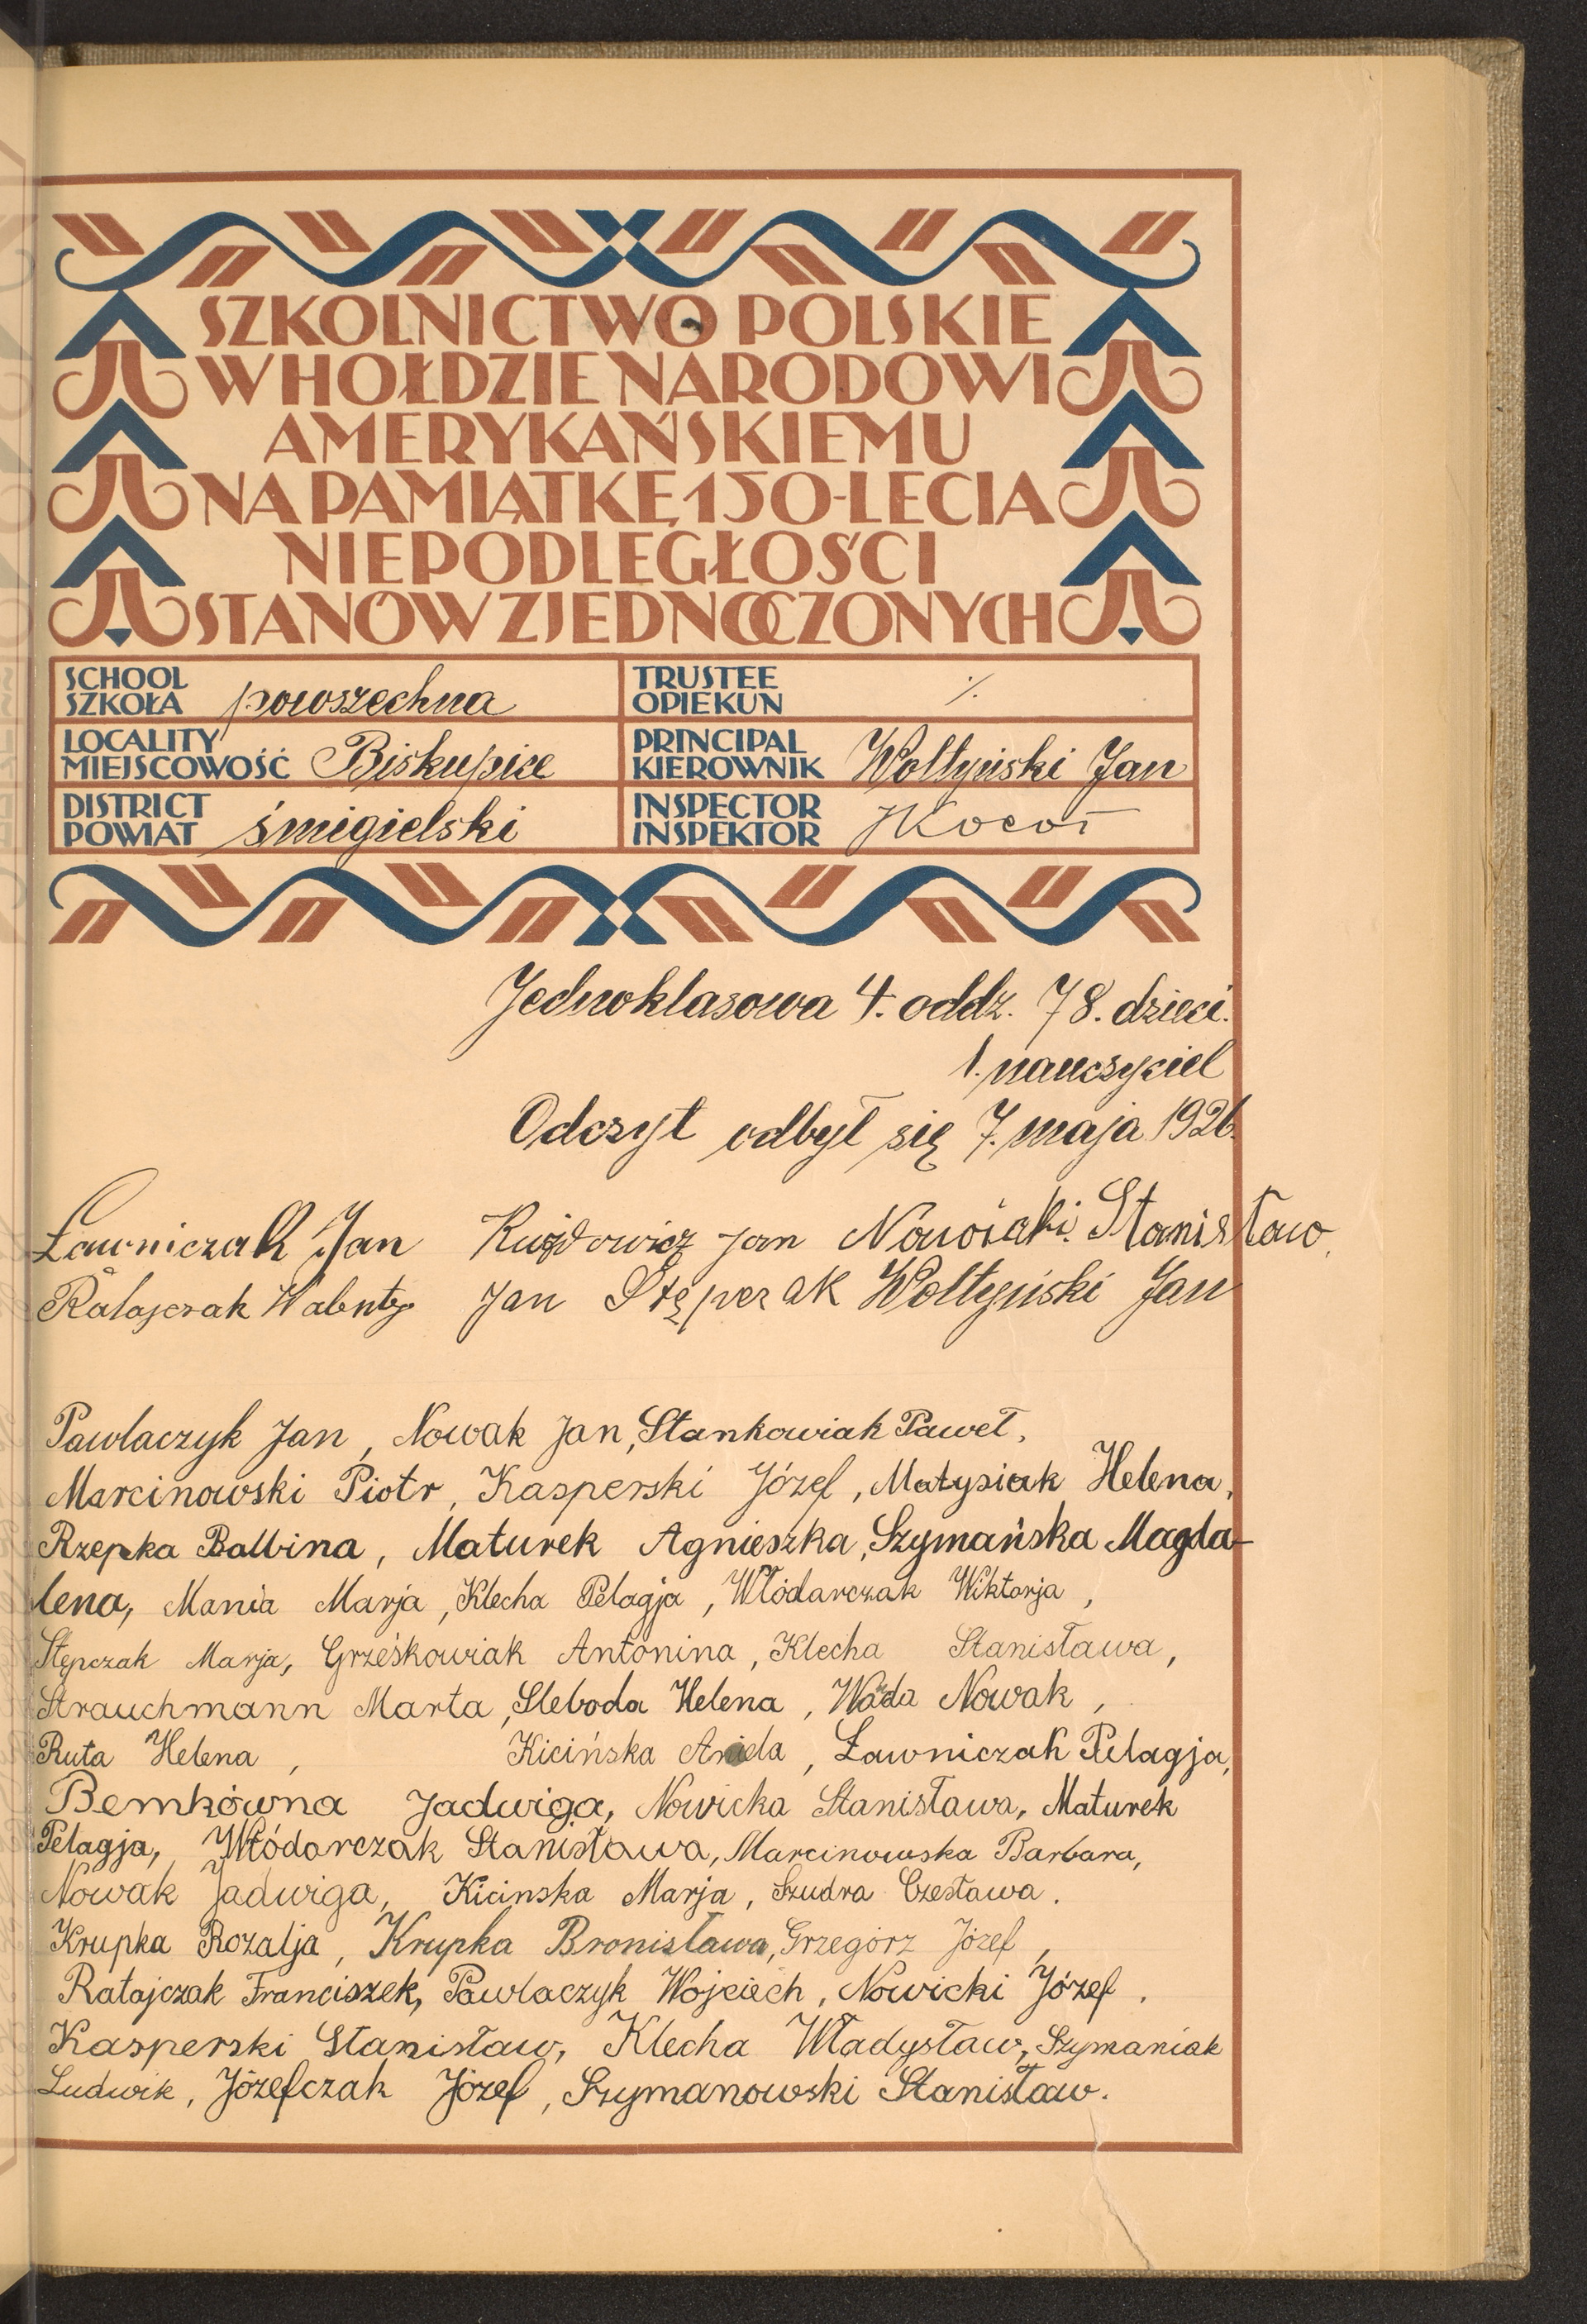 SZKOLNICTWO POLSKIE
W HOŁDZIE NARODOWI
AMERYKAŃSKIEMU
NA PAMIĄTKĘ 150-LECIA
NIEPODLEGŁOŚCI
STANÓW ZJEDNOCZONYCH
SCHOOL SZKOŁA powszechna
TRUSTEE OPIEKUN ٪
LOCALITY MIEJSCOWOŚĆ Biskupice
PRINCIPAL KIEROWNIK Woltyński Jan
DISTRICT POWIAT śmigielski
INSPECTOR INSPEKTOR
Jednoklasowa 4. oddz. 78. dzieci.
1. nauczyciel
Odczyt odbył się 7. maja 1926.
Ławniczak Jan Jan Nowicki Stanisław
Ratajczak Walenty Jan Stępczak Woltyński Jan
Pawlaczyk Jan, Nowak Jan, Stankowiak Paweł,
Marcinowski Piotr, Kasperski Józef, Matysiak Helena,
Rzepka Balbina, Maturek Agnieszka, Szymańska Magda-
lena, Mania Marja, Klecha Pelagja, Włódarczak Wiktorja,
Stępczak Marja, Grześkowiak Antonina, Klecha Stanisława,
Strauchmann Marta, Sleboda Helena, Nowak,
Ruta Helena, Kicińska Ławniczak Pelagja,
Bemkówna Jadwiga, Nowicka Stanisława, Maturek
Pelagja, Włódarczak Stanisława, Marcinowska Barbara,
Nowak Jadwiga, Kicinska Marja, Szudra Czesława.
Krupka Rozalja, Krupka Bronisława, Grzegorz Józef,
Ratajczak Franciszek, Pawlaczyk Wojciech, Nowicki Józef.
Kasperski Stanisław, Klecha Władysław, Szymaniak
Ludwik, Józefczak Józef, Szymanowski Stanisław.